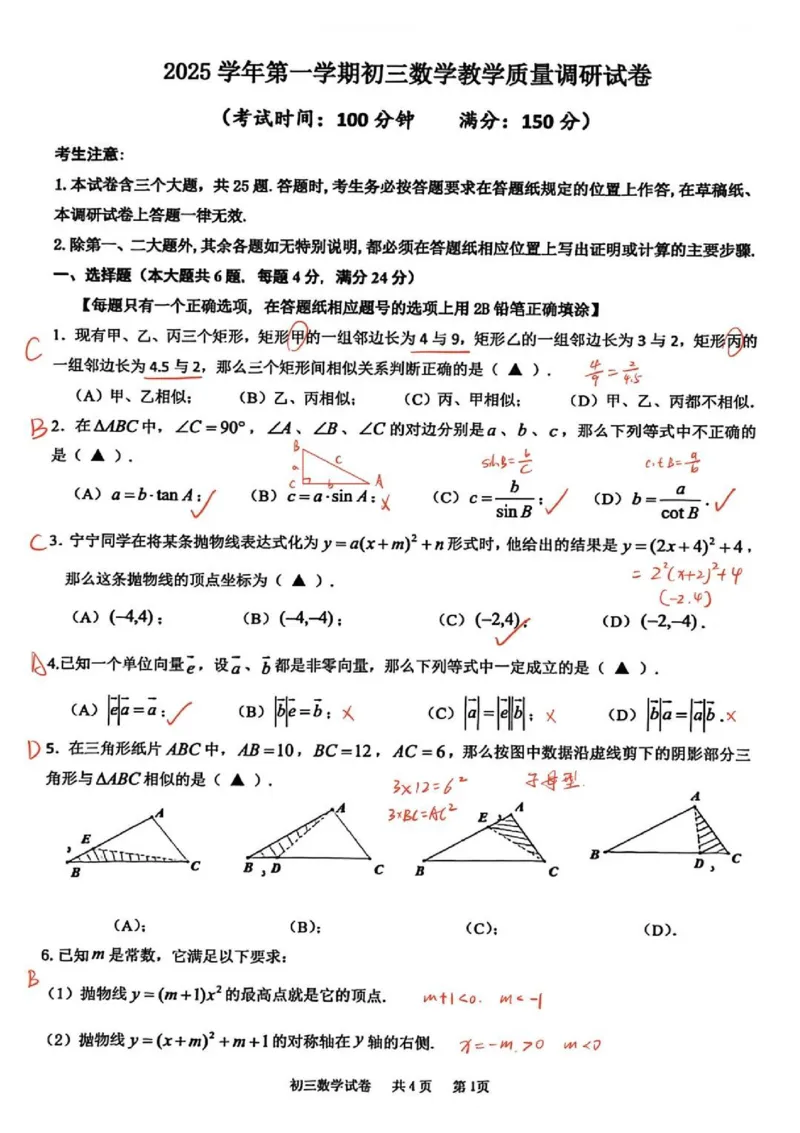 2025 学年第一学期初三数学教学质量调研试卷
（考试时间：100 分钟 满分：150 分）
考生注意：
1.本试卷含三个大题，共 25 题.答题时,考生务必按答题要求在答题纸规定的位置上作答,在草稿纸、
本调研试卷上答题一律无效.
2.除第一、二大题外,其余各题如无特别说明,都必须在答题纸相应位置上写出证明或计算的主要步骤.
一、选择题（本大题共 6 题，每题 4 分，满分 24 分）
【每题只有一个正确选项，在答题纸相应题号的选项上用 2B 铅笔正确填涂】
C 1．现有甲、乙、丙三个矩形，矩形甲的一组邻边长为 4 与 9，矩形乙的一组邻边长为 3 与 2，矩形丙的
一组邻边长为 4.5 与 2，那么三个矩形间相似关系判断正确的是（ ▲ ）． 4/9=2/4.5
（A）甲、乙相似； （B）乙、丙相似； （C）丙、甲相似； （D）甲、乙、丙都不相似.
B 2．在ΔABC 中，∠C = 90°，∠A、∠B、∠C 的对边分别是 a 、b 、c，那么下列等式中不正确的
是（ ▲ ）． B a c C b A sinB=b/c cotB=a/b
（A）a = b·tan A；✓ （B）c = a·sin A；× （C）c = b/sin B；✓ （D）b = a/cot B．✓
C 3．宁宁同学在将某条抛物线表达式化为 y = a(x+m)²+n 形式时，他给出的结果是 y = (2x+4)²+4，
那么这条抛物线的顶点坐标为（ ▲ ）． = 2²(x+2)²+4
(-2.4)
（A）(−4,4)； （B）(−4,−4)； （C）(−2,4)；✓ （D）(−2,−4)．
A 4.已知一个单位向量e⃗，设a⃗、b⃗都是非零向量，那么下列等式中一定成立的是（ ▲ ）．
（A）|e⃗|a⃗ = a⃗；✓ （B）|b⃗|e⃗ = b⃗；× （C）|a⃗| = |e⃗||b⃗|；× （D）|b⃗|a⃗ = |a⃗|b⃗．×
D 5．在三角形纸片 ABC 中，AB =10，BC =12，AC = 6，那么按图中数据沿虚线剪下的阴影部分三
角形与ΔABC 相似的是（ ▲ ）． 3×12=6² 子母型.
3×BC=AC²
A E 3 B C
A B 3 D C
A E B C
A B D 3 C
（A）； （B）； （C）； （D）．
6.已知 m 是常数，它满足以下要求：
B
（1）抛物线 y = (m+1)x² 的最高点就是它的顶点． m+1<0. m<-1
（2）抛物线 y = (x+m)²+m+1 的对称轴在 y 轴的右侧． x=-m.>0 m<0
初三数学试卷 共 4 页 第 1页